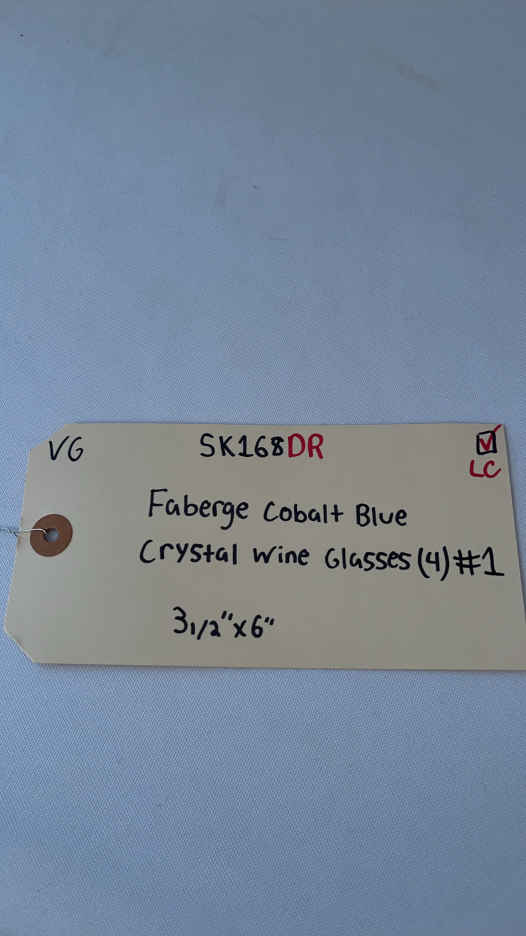 VG SK168DR ☑
LC
Faberge Cobalt Blue
Crystal Wine Glasses (4) #1
3 1/2" x 6"